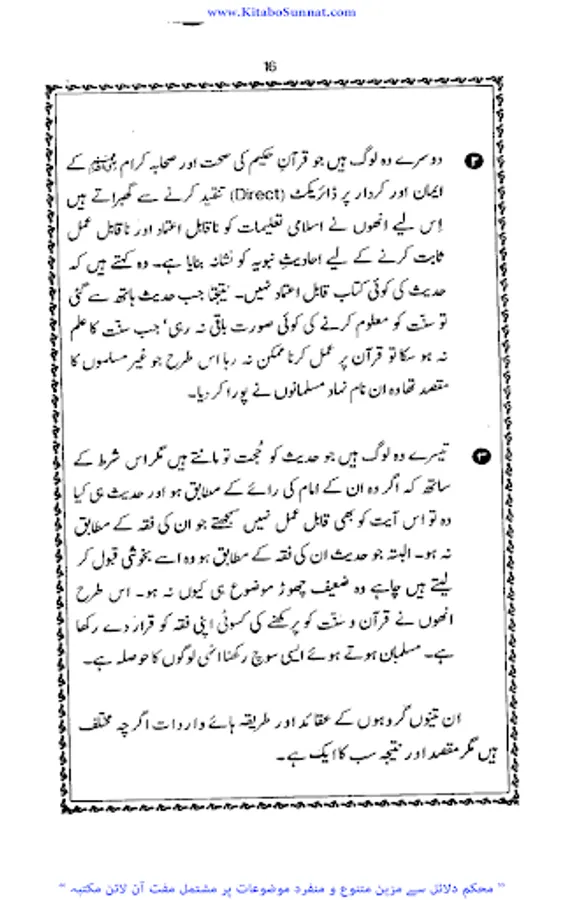 www.KitaboSunnat.com
16
۲ دوسرے وہ لوگ ہیں جو قرآن حکیم کی صحت اور صحابہ کرام کے
ایمان اور کردار پر ڈائریکٹ (Direct) تنقید کرنے سے گھبراتے ہیں
اِس لیے انھوں نے اسلامی تعلیمات کو ناقابل اعتماد اور ناقابل عمل
ثابت کرنے کے لیے احادیثِ نبویہ کو نشانہ بنایا ہے۔ وہ کہتے ہیں کہ
حدیث کی کوئی کتاب قابل اعتماد نہیں۔ نتیجتاً جب حدیث ہاتھ سے گئی
تو سنّت کو معلوم کرنے کی کوئی صورت باقی نہ رہی‘ جب سنّت کا علم
نہ ہو سکا تو قرآن پر عمل کرنا ممکن نہ رہا اس طرح جو غیر مسلموں کا
مقصد تھا وہ ان نام نہاد مسلمانوں نے پورا کر دیا۔
۳ تیسرے وہ لوگ ہیں جو حدیث کو حُجت تو مانتے ہیں مگر اس شرط کے
ساتھ کہ اگر وہ ان کے امام کی رائے کے مطابق ہو اور حدیث ہی کیا
وہ تو اس آیت کو بھی قابل عمل نہیں سمجھتے جو ان کی فقہ کے مطابق
نہ ہو۔ البتہ جو حدیث ان کی فقہ کے مطابق ہو وہ اسے بخوشی قبول کر
لیتے ہیں چاہے وہ ضعیف چھوڑ موضوع ہی کیوں نہ ہو۔ اس طرح
انھوں نے قرآن و سنّت کو پرکھنے کی کسوٹی اپنی فقہ کو قرار دے رکھا
ہے۔ مسلمان ہوتے ہوئے ایسی سوچ رکھنا انہی لوگوں کا حوصلہ ہے۔
ان تینوں گروہوں کے عقائد اور طریقہ ہائے واردات اگرچہ مختلف
ہیں مگر مقصد اور نتیجہ سب کا ایک ہے۔
" محکم دلائل سے مزین متنوع و منفرد موضوعات پر مشتمل مفت آن لائن مکتبہ "